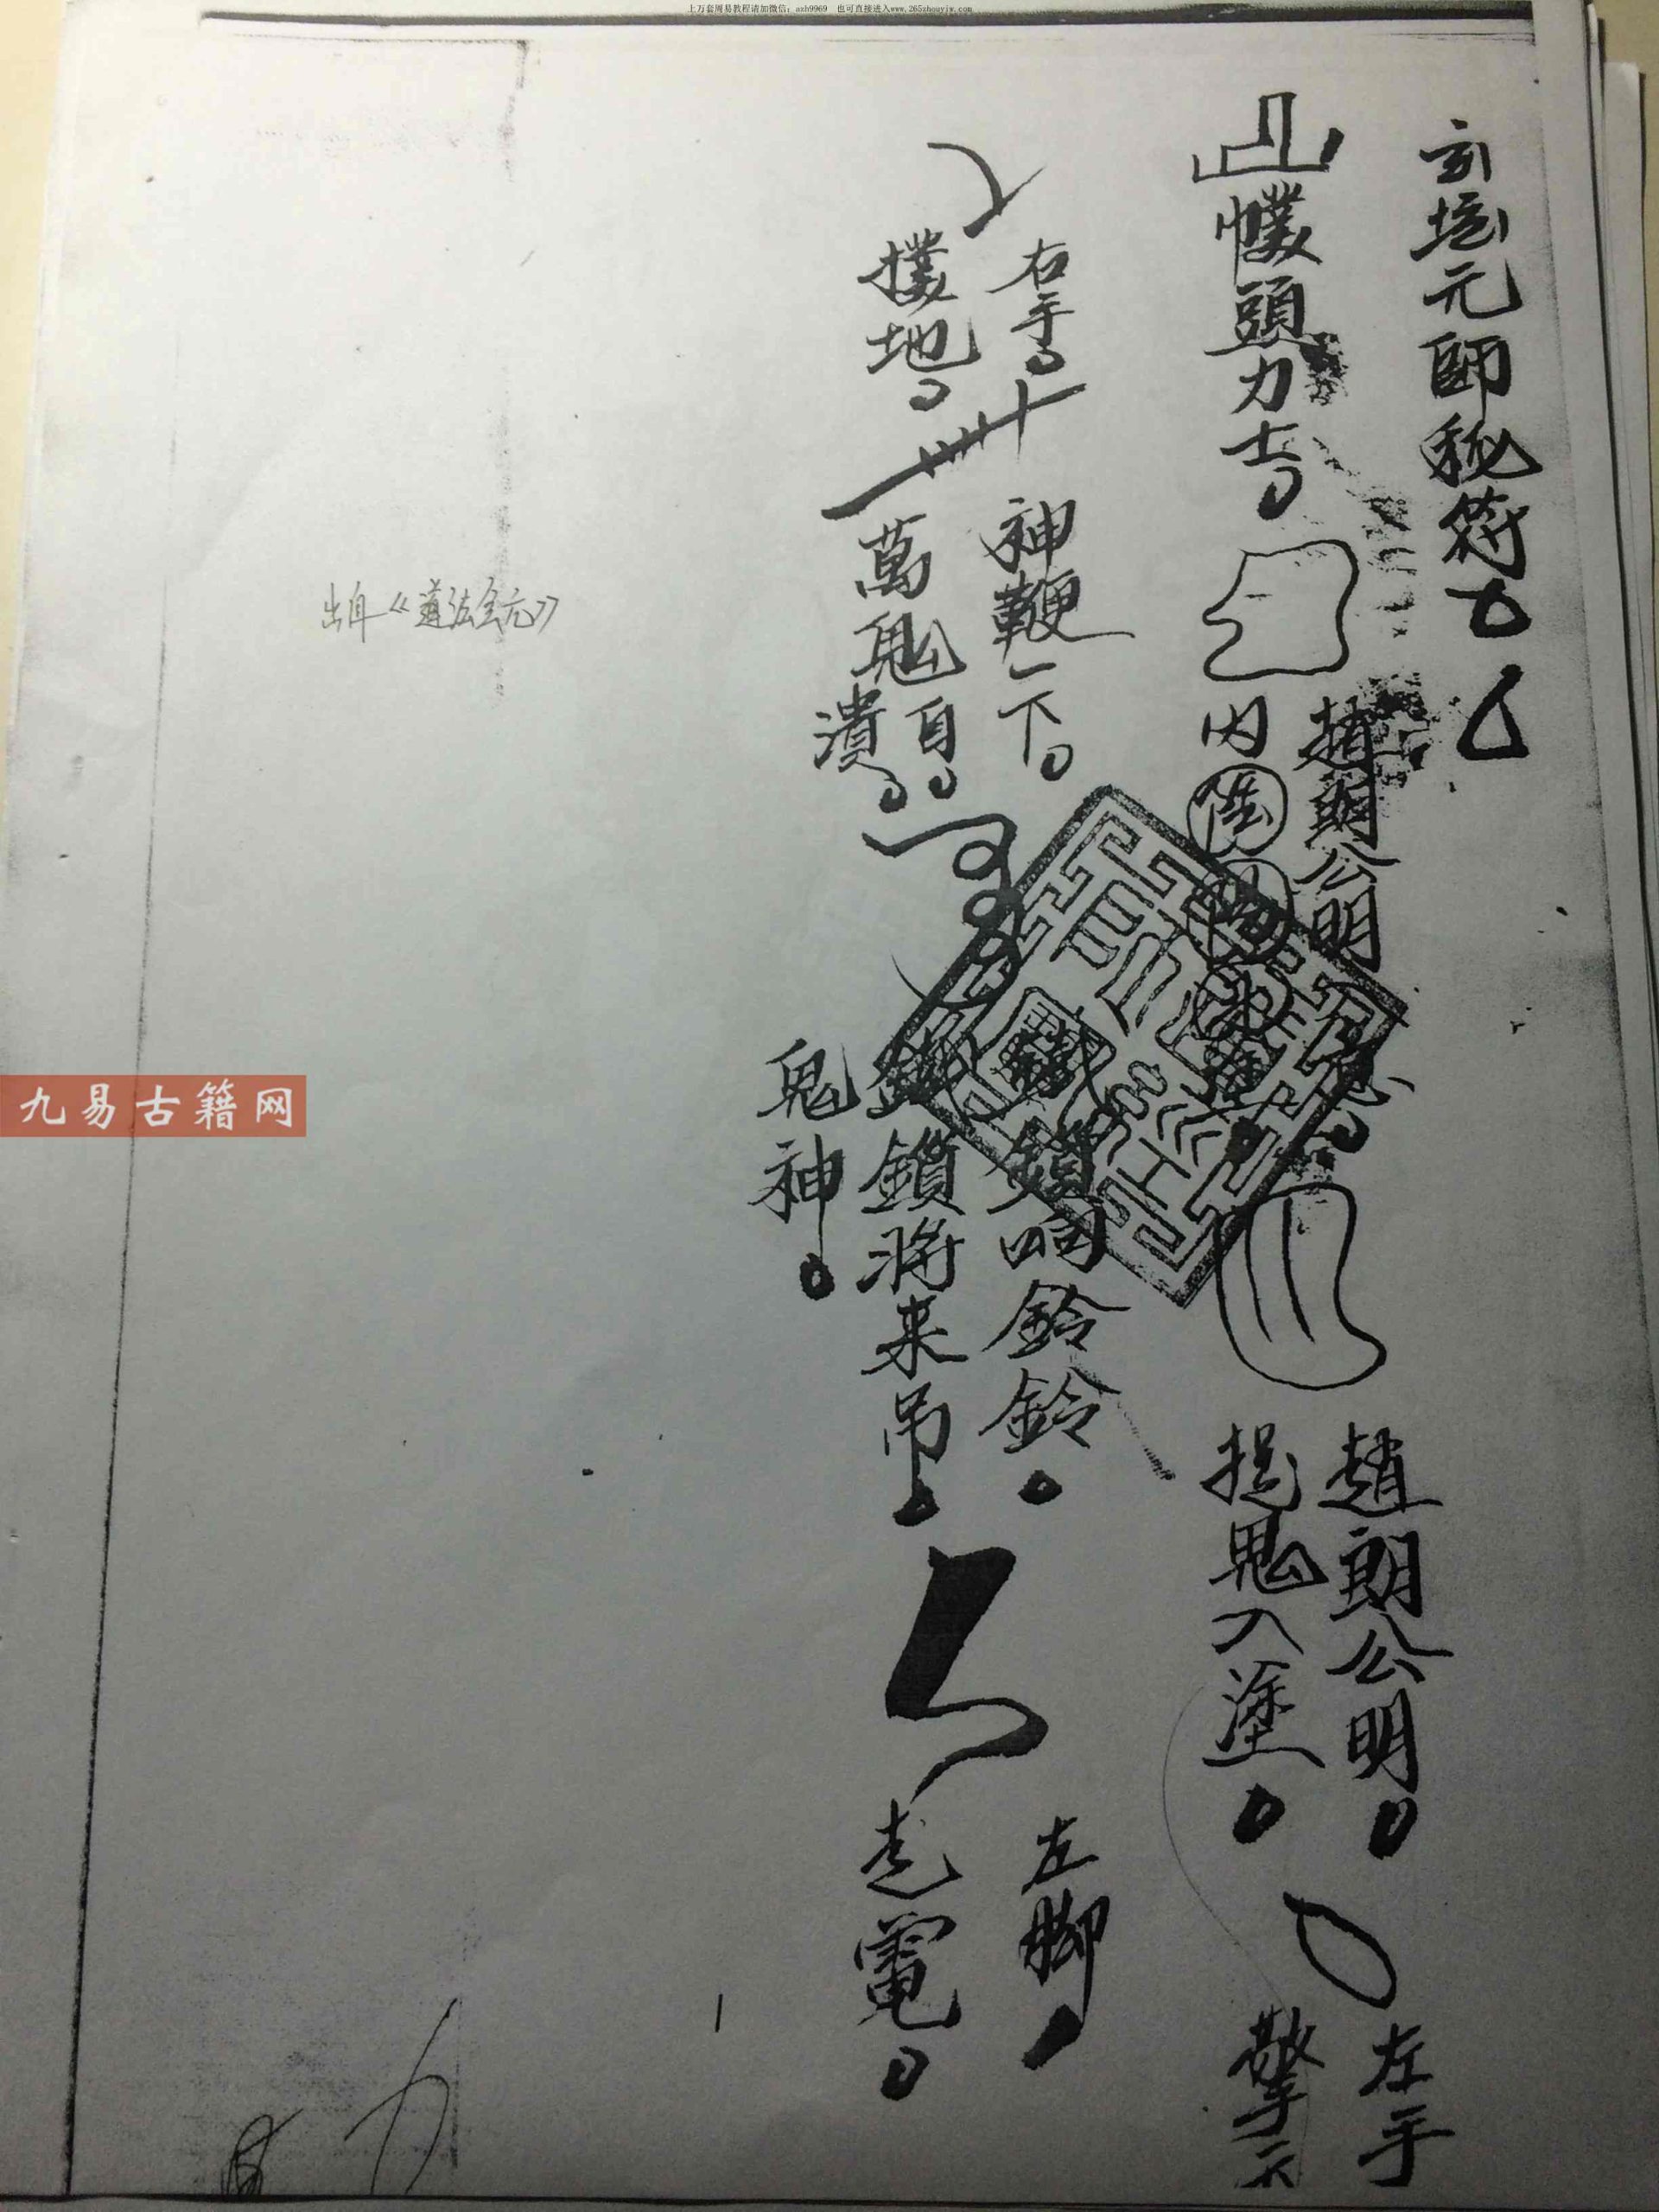 上万套周易教程请加微信：axh9969 也可直接进入www.265zhouyjw.com
玄壇元帥秘符
幞頭力士
内
趙朗公明
趙朗公明
捉鬼入
左手
擎天
右手
撲地
神鞭一下
萬鬼自潰
鎖响鈴鈴
鎖将来吊
鬼神
左脚
走電
出自《道法会元》
九易古籍网